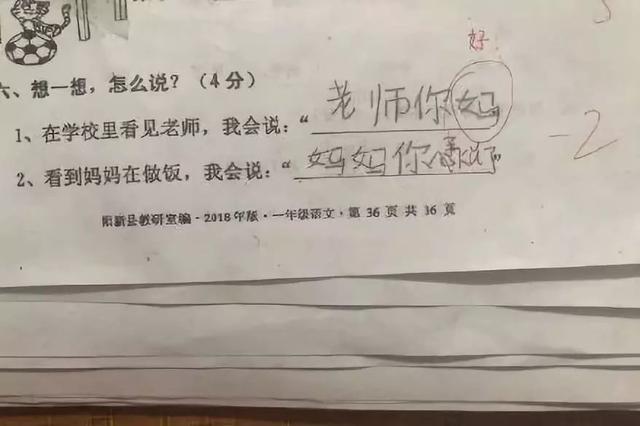 好
六、想一想，怎么说？（4分）
1、在学校里看见老师，我会说：“老师你妈”
-2
2、看到妈妈在做饭，我会说：“妈妈你辛苦了”
阳新县教研室编·2018年版·一年级语文，第36页 共36页